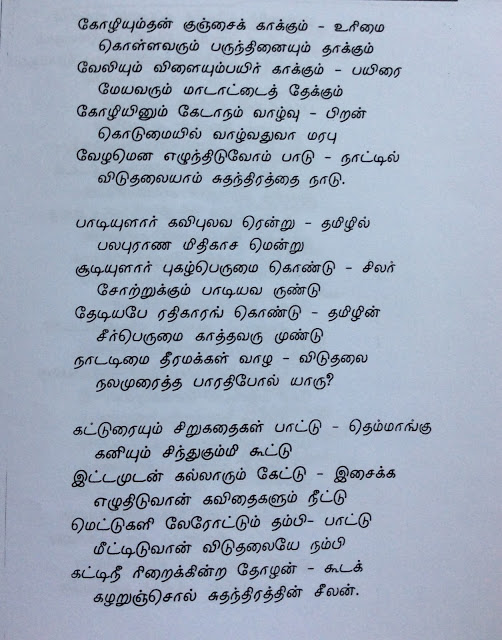 கோழியும்தன் குஞ்சைக் காக்கும் - உரிமை
கொள்ளவரும் பருந்தினையும் தாக்கும்
வேலியும் விளையும்பயிர் காக்கும் - பயிரை
மேயவரும் மாடாட்டைத் தேக்கும்
கோழியினும் கேடாநம் வாழ்வு - பிறன்
கொடுமையில் வாழ்வதுவா மரபு
வேழமென எழுந்திடுவோம் பாடு - நாட்டில்
விடுதலையாம் சுதந்திரத்தை நாடு.
பாடியுளார் கவிபுலவ ரென்று - தமிழில்
பலபுராண மிதிகாச மென்று
சூடியுளார் புகழ்பெருமை கொண்டு - சிலர்
சோற்றுக்கும் பாடியவ ருண்டு
தேடியபே ரதிகாரங் கொண்டு - தமிழின்
சீர்பெருமை காத்தவரு முண்டு
நாடடிமை தீரமக்கள் வாழ - விடுதலை
நலமுரைத்த பாரதிபோல் யாரு?
கட்டுரையும் சிறுகதைகள் பாட்டு - தெம்மாங்கு
கனியும் சிந்துகும்மி கூட்டு
இட்டமுடன் கல்லாரும் கேட்டு - இசைக்க
எழுதிடுவான் கவிதைகளும் நீட்டு
மெட்டுகளி லேரோட்டும் தம்பி- பாட்டு
மீட்டிடுவான் விடுதலையே நம்பி
கட்டிநீ ரிறைக்கின்ற தோழன் - கூடக்
கழறுஞ்சொல் சுதந்திரத்தின் சீலன்.